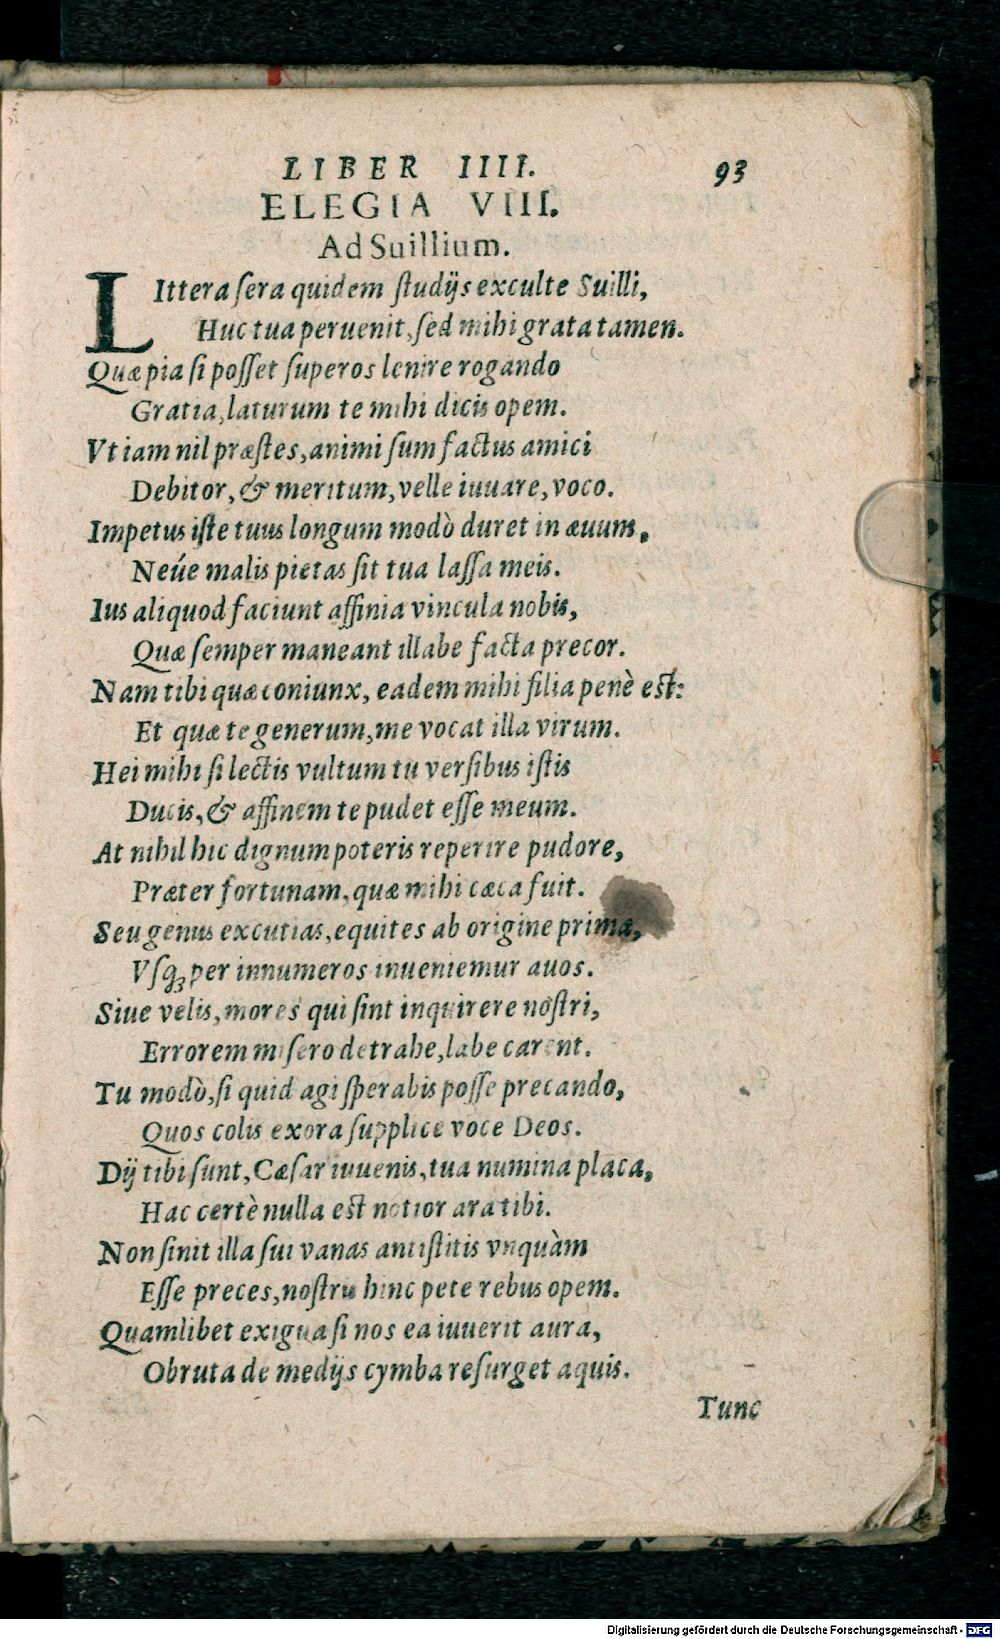 LIBER IIII. 93
ELEGIA VIII.
Ad Suillium.
LIttera sera quidem studijs exculte Suilli,
Huc tua peruenit, sed mihi grata tamen.
Quæ pia si posset superos lenire rogando
Gratia, laturum te mihi dicis opem.
Vt iam nil præstes, animi sum factus amici
Debitor, & meritum, velle iuuare, voco.
Impetus iste tuus longum modò duret in æuum,
Neúe malis pietas sit tua lassa meis.
Ius aliquod faciunt affinia vincula nobis,
Quæ semper maneant illabefacta precor.
Nam tibi quæ coniunx, eadem mihi filia penè est:
Et quæ te generum, me vocat illa virum.
Hei mihi si lectis vultum tu versibus istis
Ducis, & affinem te pudet esse meum.
At nihil hic dignum poteris reperire pudore,
Præter fortunam, quæ mihi cæca fuit.
Seu genus excutias, equites ab origine prima,
Vsqꝫ per innumeros inueniemur auos.
Siue velis, mores qui sint inquirere nostri,
Errorem misero detrahe, labe carent.
Tu modò, si quid agi sperabis posse precando,
Quos colis exora supplice voce Deos.
Dij tibi sunt, Cæsar iuuenis, tua numina placa,
Hac certè nulla est notior ara tibi.
Non sinit illa sui vanas antistitis vnquàm
Esse preces, nostris hinc pete rebus opem.
Quamlibet exigua si nos ea iuuerit aura,
Obruta de medijs cymba resurget aquis.
Tunc
Digitalisierung gefördert durch die Deutsche Forschungsgemeinschaft - DFG